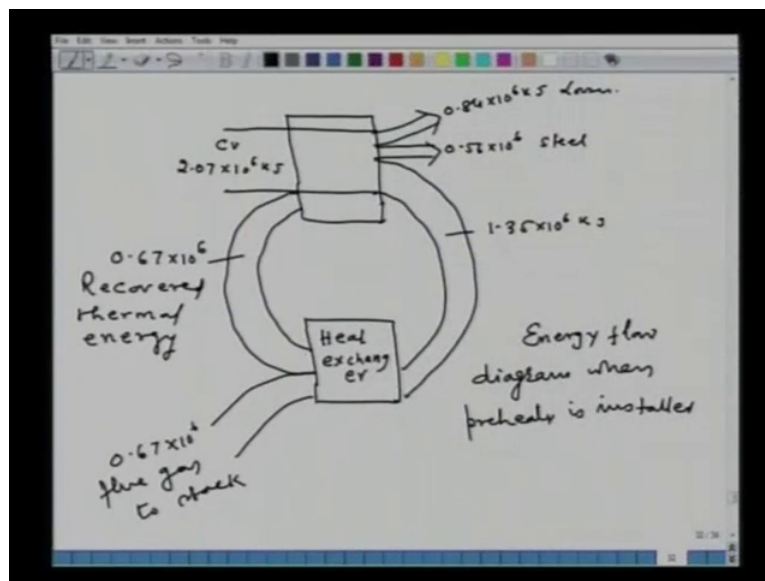 File Edit View Insert Actions Tools Help
0.84x10⁶ KJ
CV
2.07x10⁶ KJ
0.56x10⁶ steel
1.35x10⁶ KJ
0.67x10⁶
Recovered
thermal
energy
Heat
exchang
er
Energy flow
diagram when
preheater is installed
0.67x10⁶
flue gas
to stack